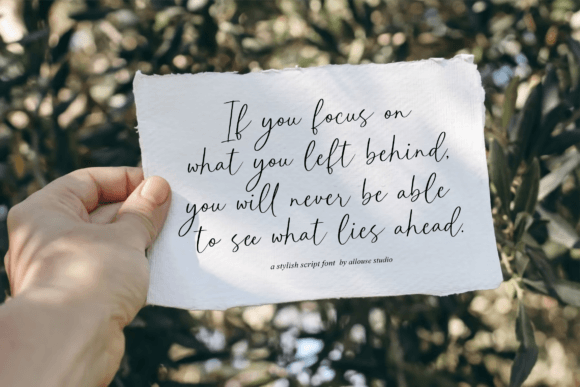 If you focus on
what you left behind,
you will never be able
to see what lies ahead.
a stylish script font by allouse studio